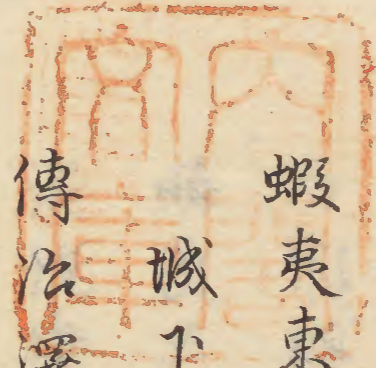 蝦夷東
城下
傳治澤